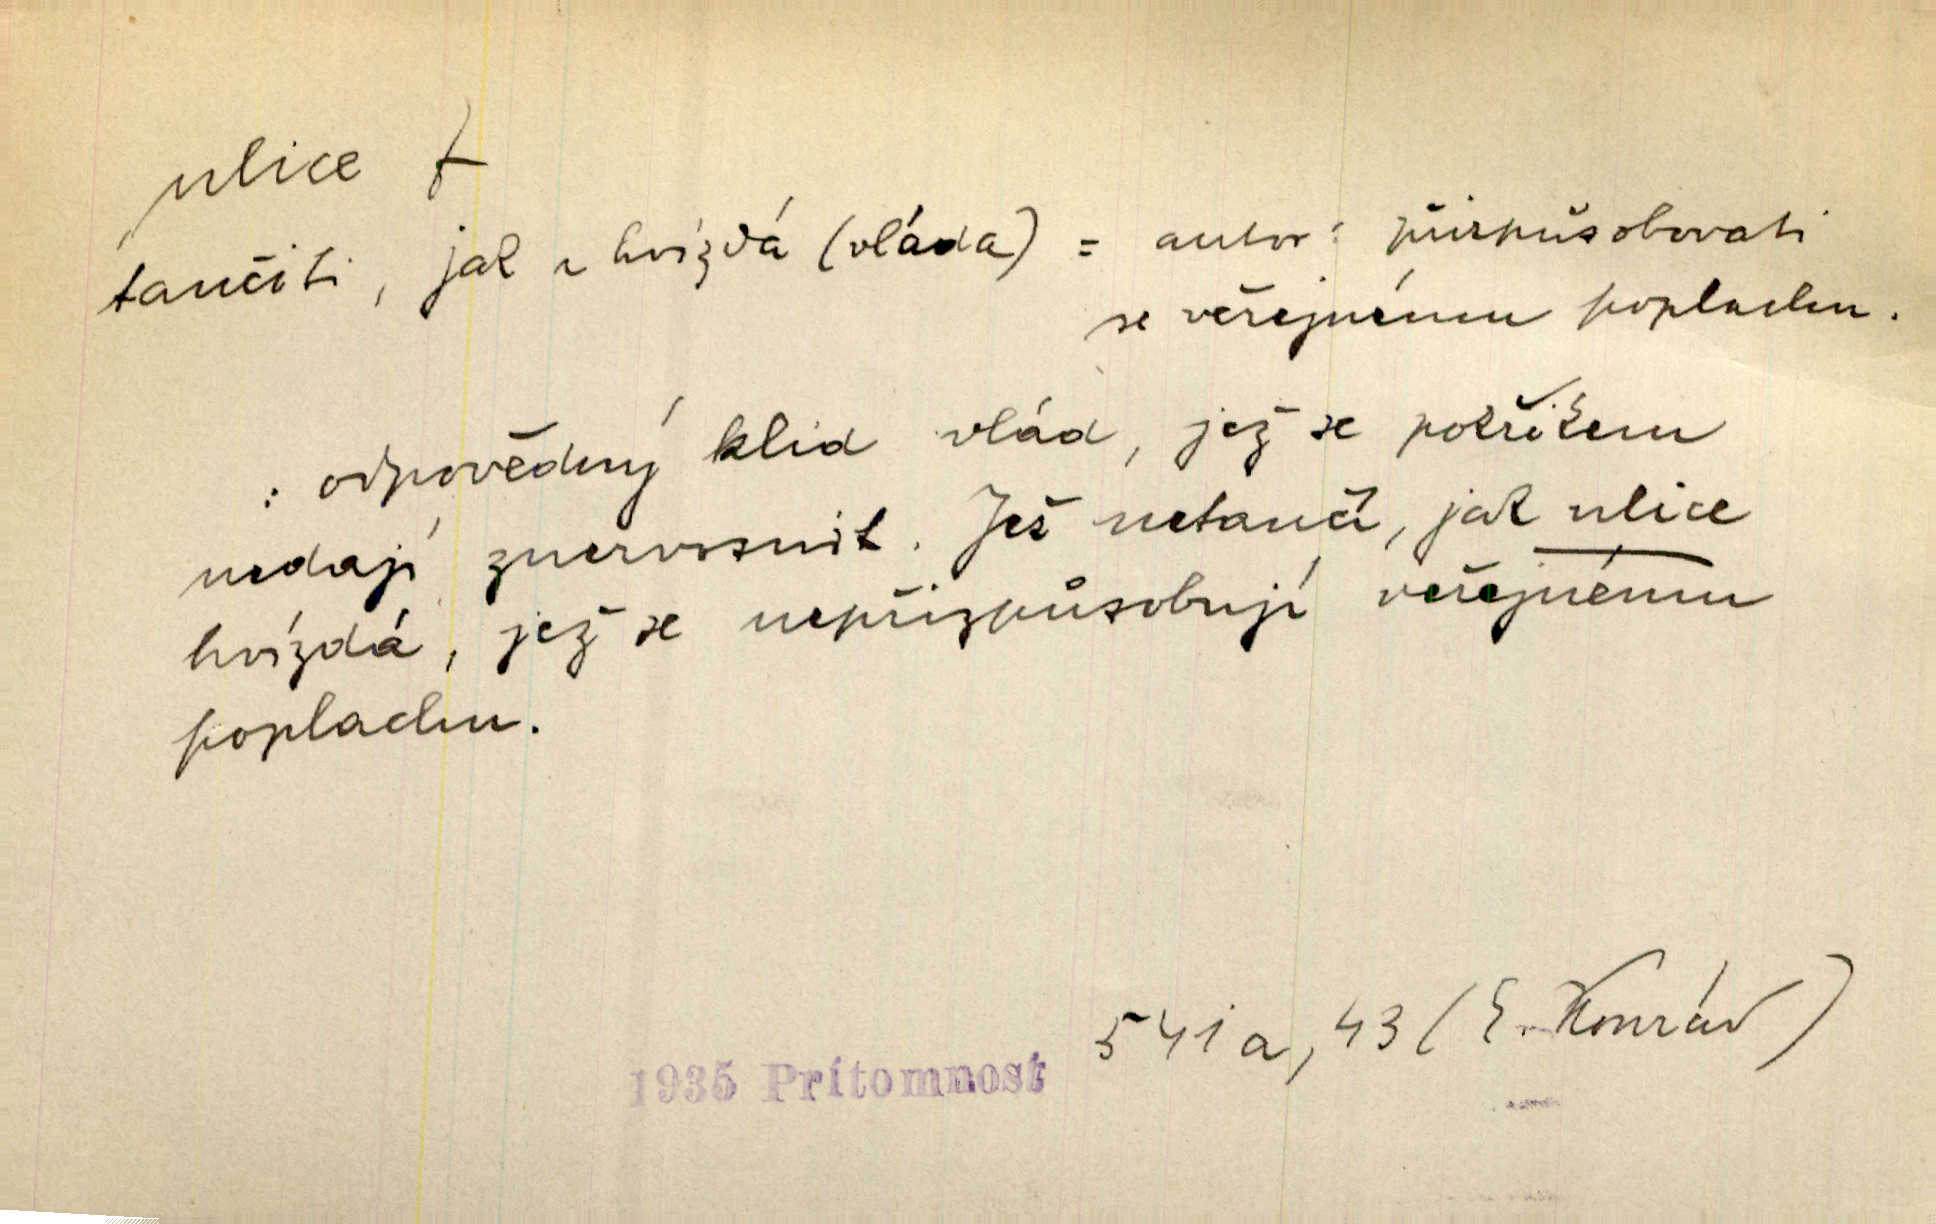 ulice f
tančiti, jak u hvízdá (vláda) = autor: přizpůsobovati
se veřejnému poplachu.
: odpovědný klid vlád, jež se pokřikem
nedají znervosnit. Jež netančí, jak ulice
hvízdá, jež se nepřizpůsobují veřejnému
poplachu.
541a, 43 (E. Konrád)
1935 Prítomnost